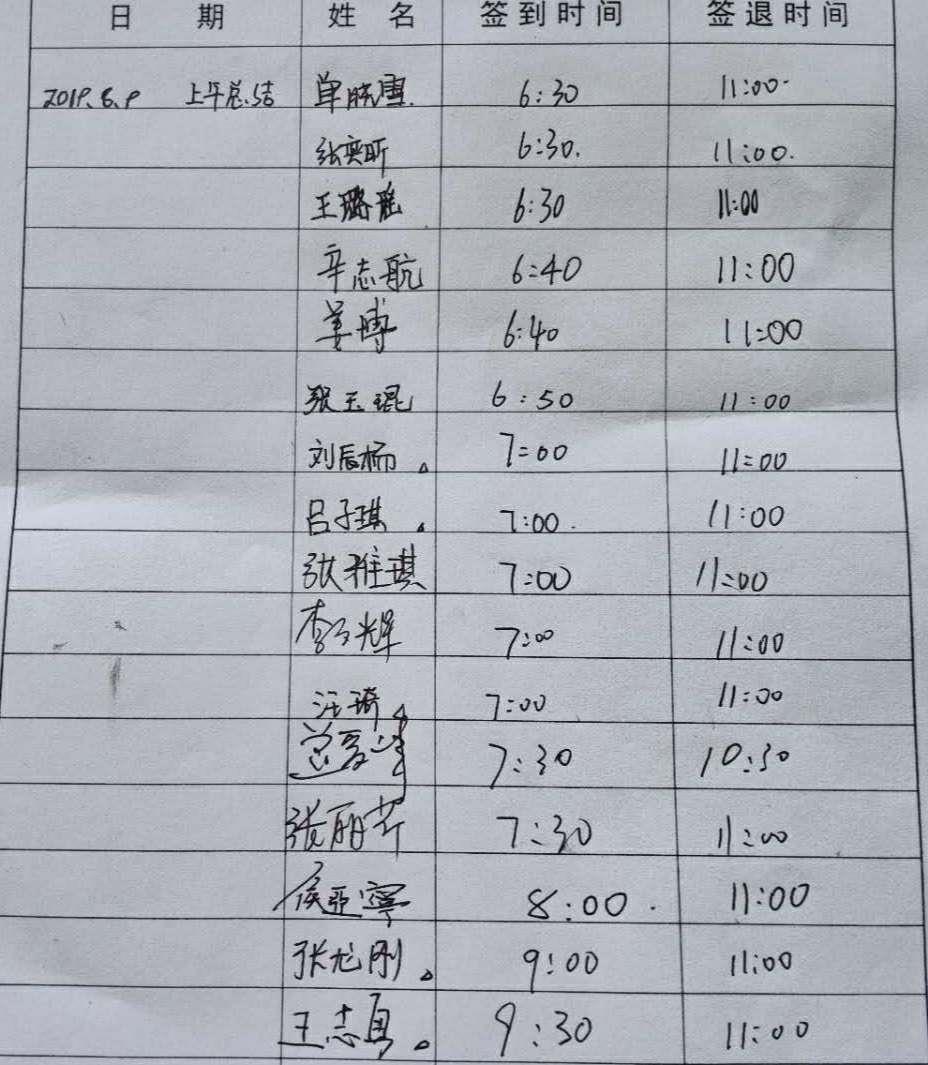 日 期 姓 名 签到时间 签退时间
2019.8.9 上午总结 单晓雪. 6:30 11:00
张奕昕 6:30. 11:00.
王璐瑶 6:30 11:00
辛志航 6:40 11:00
姜博 6:40 11:00
张玉琨 6:50 11:00
刘辰杨 7:00 11:00
吕子琪 7:00. 11:00
张雅琪 7:00 11:00
7:00 11:00
汪琦 7:00 11:00
7:30 10:30
张丽芹 7:30 11:00
侯亚宁 8:00. 11:00
张龙刚 9:00 11:00
王志勇 9:30 11:00